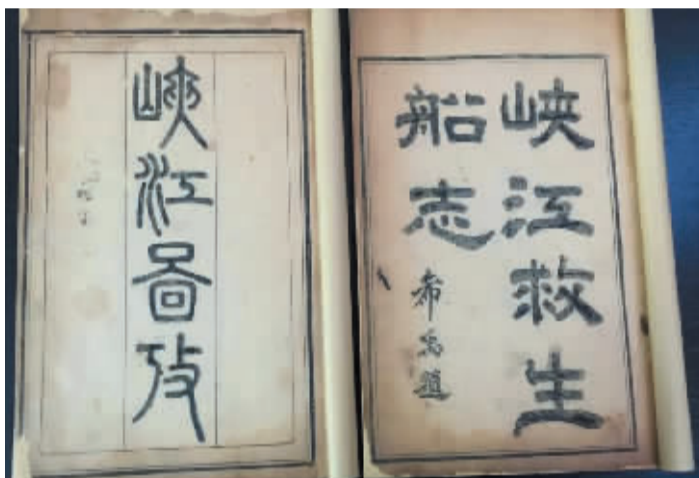 峽江救生
船志
題
峽江啚攷